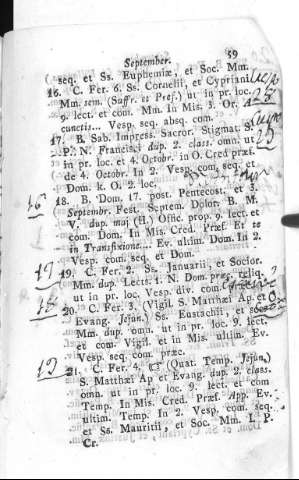 September. 59
seq. et Ss. Euphemiæ, et Soc. Mm.
16. C. Fer. 6. Ss. Cornelii, et Cypriani
Mm. sem. (Suffr. et Pref.) ut in pr. loc.
9. lect. et com. Mm. In Mis. 3. Or. A
cunctis... Vesp. seq. absq. com.
17. B. Sab. Impress. Sacror. Stigmat. S.
P. N. Francis. dup. 2. class. omn. ut
in pr. loc. et 4. Octobr. in O. Cred præf.
de 4. Octobr. In 2. Vesp. com. seq. et
Dom. k. O. 2. loc.
16
18. B. Dom. 17. post. Pentecost. et 3.
Septembr. Fest. Septem. Dolor. B. M.
V. dup. maj (H.) Offic. prop. 9. lect. et
com. Dom. In Mis. Cred. Præf. Et te
in Transfixione.... Ev. ultim. Dom. In 2.
Vesp. com. seq. et Dom.
17
19. C. Fer. 2. Ss. Januarii, et Socior.
Mm. dup. Lect. 1. N. Dom. præc. reliq.
ut in pr. loc. Vesp. div. com.
18
20. C. Fer. 3. (Vigil. S. Matthæi Ap et
Evang. Jejun.) Ss. Eustachii, et soc.
Mm. dup. omn. ut in pr. loc. 9. lect.
et com Vigil. et in Mis. ultim. Ev.
Vesp. seq. com. præc.
19
21. C. Fer. 4. ☞ (Quat. Temp. Jejun.)
S. Matthæi Ap et Evang. dup. 2. class.
omn. ut in pr. loc. 9. lect. et com
Temp. In Mis. Cred. Præf. App. Ev.
ultim. Temp. In 2. Vesp. com. seq.
et Ss. Mauritii, et Soc. Mm. L. P.
Cr.